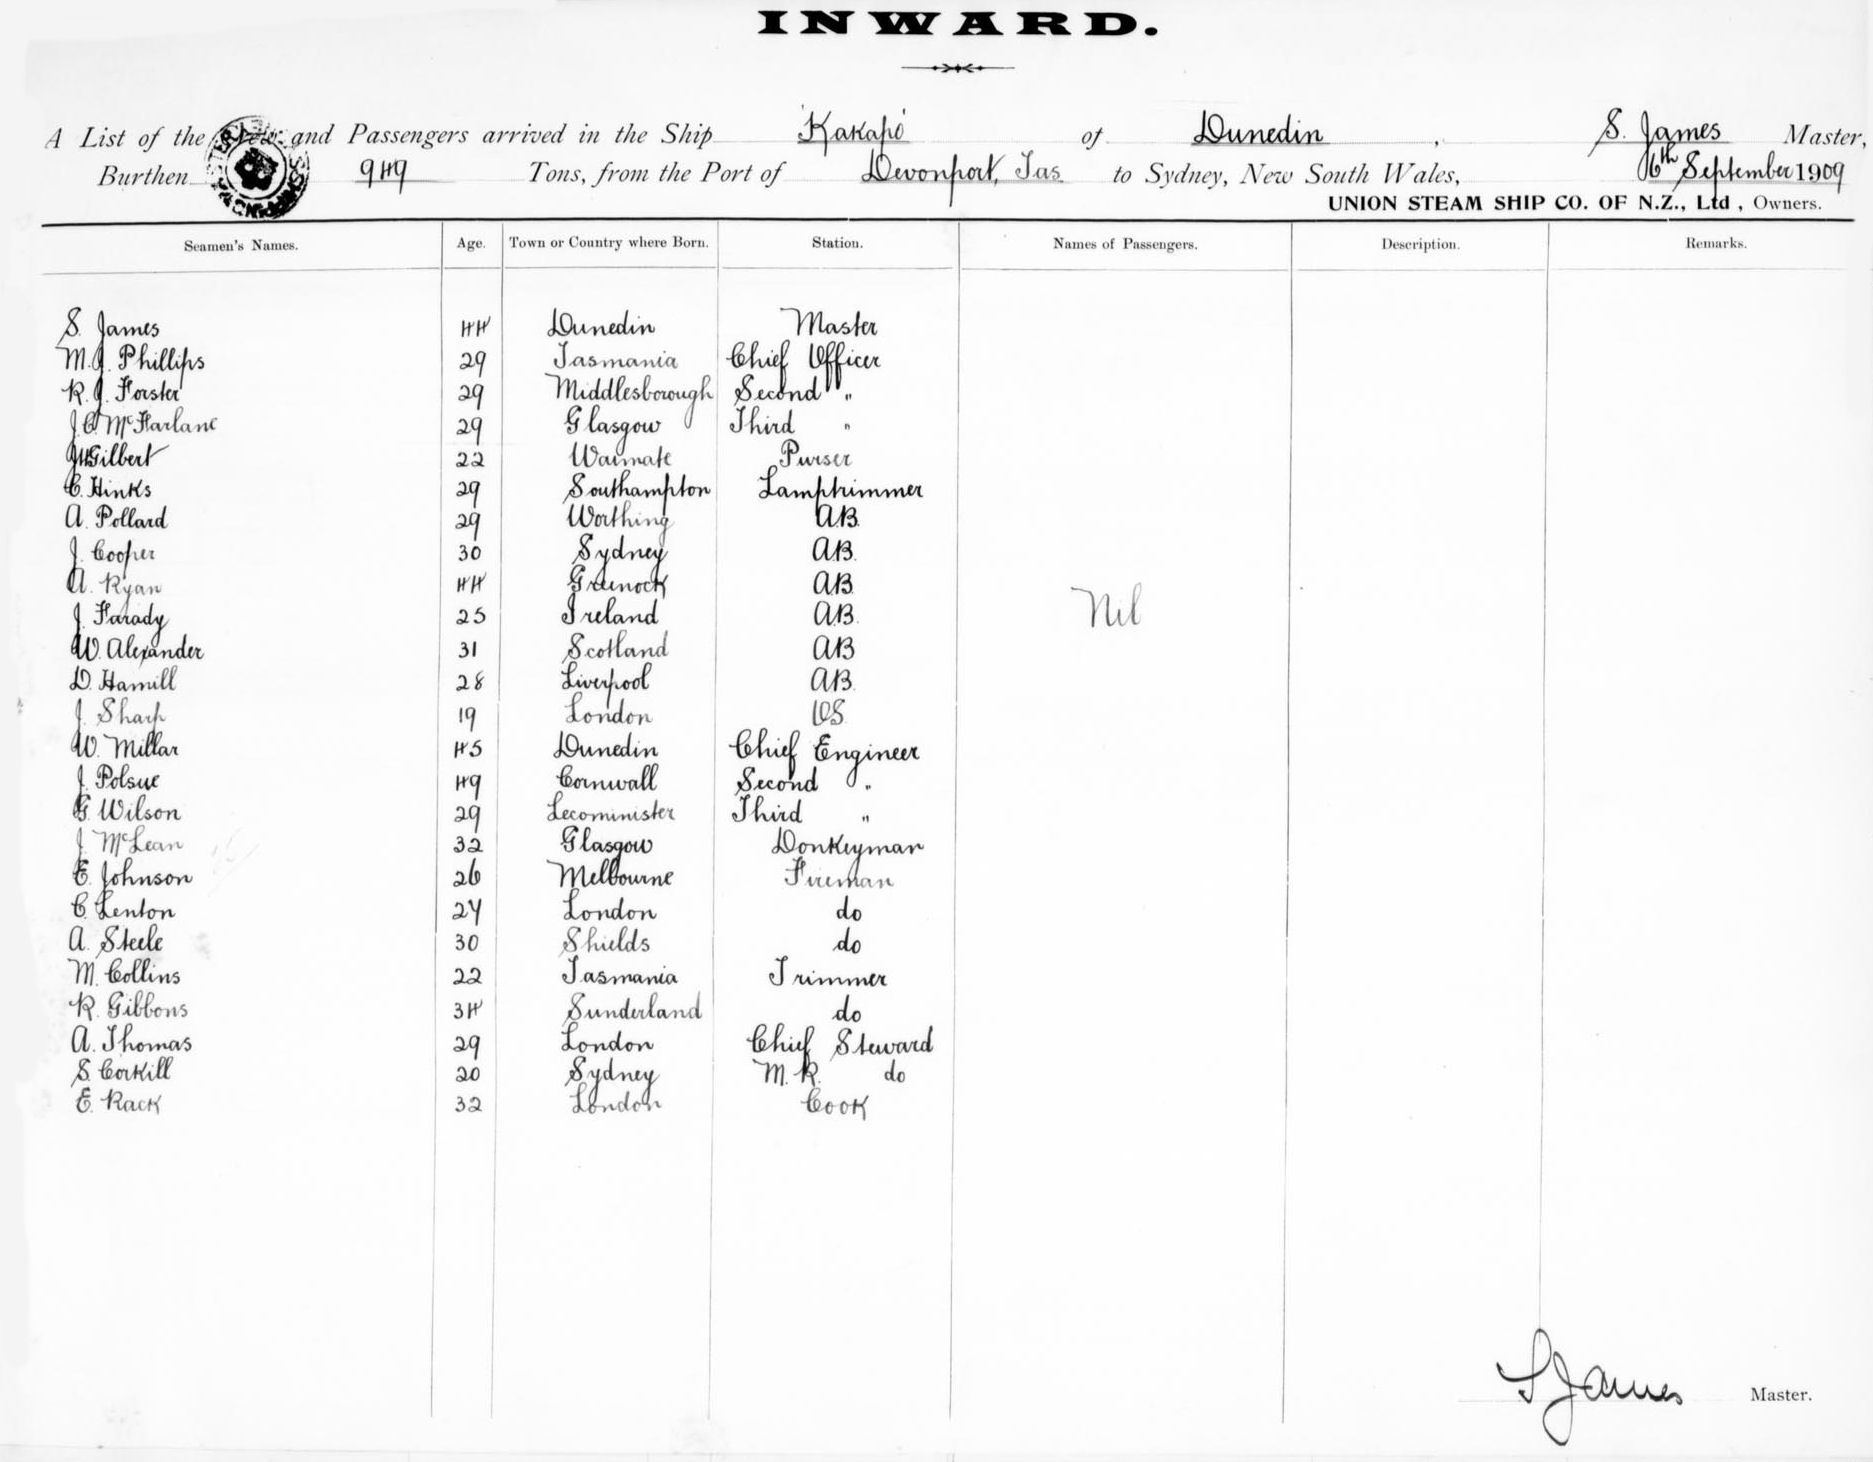 INWARD.
A List of the Crew and Passengers arrived in the Ship Kakapo of Dunedin, S. James Master,
Burthen 949 Tons, from the Port of Devonport, Tas to Sydney, New South Wales, 16th September 1909
UNION STEAM SHIP CO. OF N.Z., Ltd, Owners.
Seamen's Names. Age. Town or Country where Born. Station. Names of Passengers. Description. Remarks.
S. James 44 Dunedin Master
M.J. Phillips 29 Tasmania Chief Officer
R.J. Forster 29 Middlesborough Second "
J.C. McFarlane 29 Glasgow Third "
Gilbert 22 Waimate Purser
C. Hinks 29 Southampton Lamptrimmer
A. Pollard 29 Worthing A.B.
J. Cooper 30 Sydney A.B.
A. Ryan 44 Greenock A.B.
J. Farady 25 Ireland A.B.
Nil
W. Alexander 31 Scotland AB
D. Hamill 28 Liverpool A.B.
J. Sharp 19 London OS
W. Millar 45 Dunedin Chief Engineer
J. Polsue 49 Cornwall Second "
G. Wilson 29 Lecominister Third "
J. McLean 32 Glasgow Donkeyman
E. Johnson 26 Melbourne Fireman
C. Lenton 24 London do
A. Steele 30 Shields do
M. Collins 22 Tasmania Trimmer
R. Gibbons 34 Sunderland do
A. Thomas 29 London Chief Steward
S. Corkill 20 Sydney M.R. do
E. Rack 32 London Cook
S James Master.